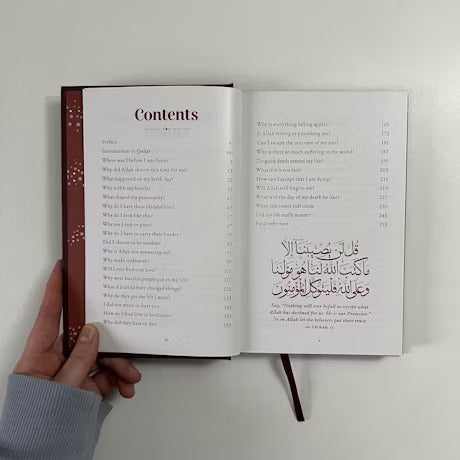 Contents
Preface
Introduction to Qadar
Where was I before I was born?
Why did Allah choose this time for me?
What happened on my birth day?
Why is this my family?
What shaped my personality?
Why do I have these disabilities?
Why do I look like this?
Why am I rich or poor?
Why do I have to carry their burden?
Did I choose to be muslim?
Why is Allah not answering me?
Why make istikharah?
Will I ever find true love? 105
Why were harmful people put in my life? 117
What if I could have changed things? 125
Why do they get the life I want? 135
I did not mean to hurt you 143
How do I find love in loneliness? 151
Why did they have to die? 159
Why is everything falling apart? 165
Is Allah testing or punishing me? 173
Can I escape the outcome of my sins? 181
Why is there so much suffering in the world? 187
Do good deeds extend my life? 195
What if it is too late? 203
How can I accept that I am dying? 211
Will Allah still forgive me? 219
What will the day of my death be like?
When life comes full circle 235
Did my life really matter? 245
Final reflection 253
قُل لَّن يُصِيبَنَا إِلَّا
مَا كَتَبَ اللَّهُ لَنَا هُوَ مَوْلَانَا
وَعَلَى اللَّهِ فَلْيَتَوَكَّلِ الْمُؤْمِنُونَ
Say, "Nothing will ever befall us except what
Allah has destined for us. He is our Protector."
So in Allah let the believers put their trust.
AT-TAUBAH, 51